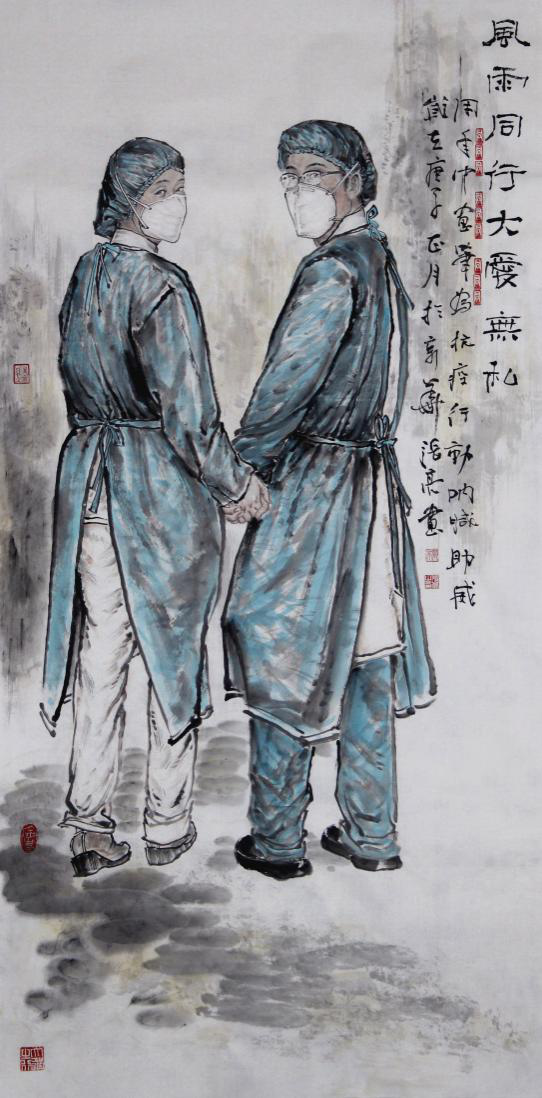 風雨同行大愛無私
用手中画筆為抗疫行動吶喊助威
歲在庚子正月於京華張亮畫